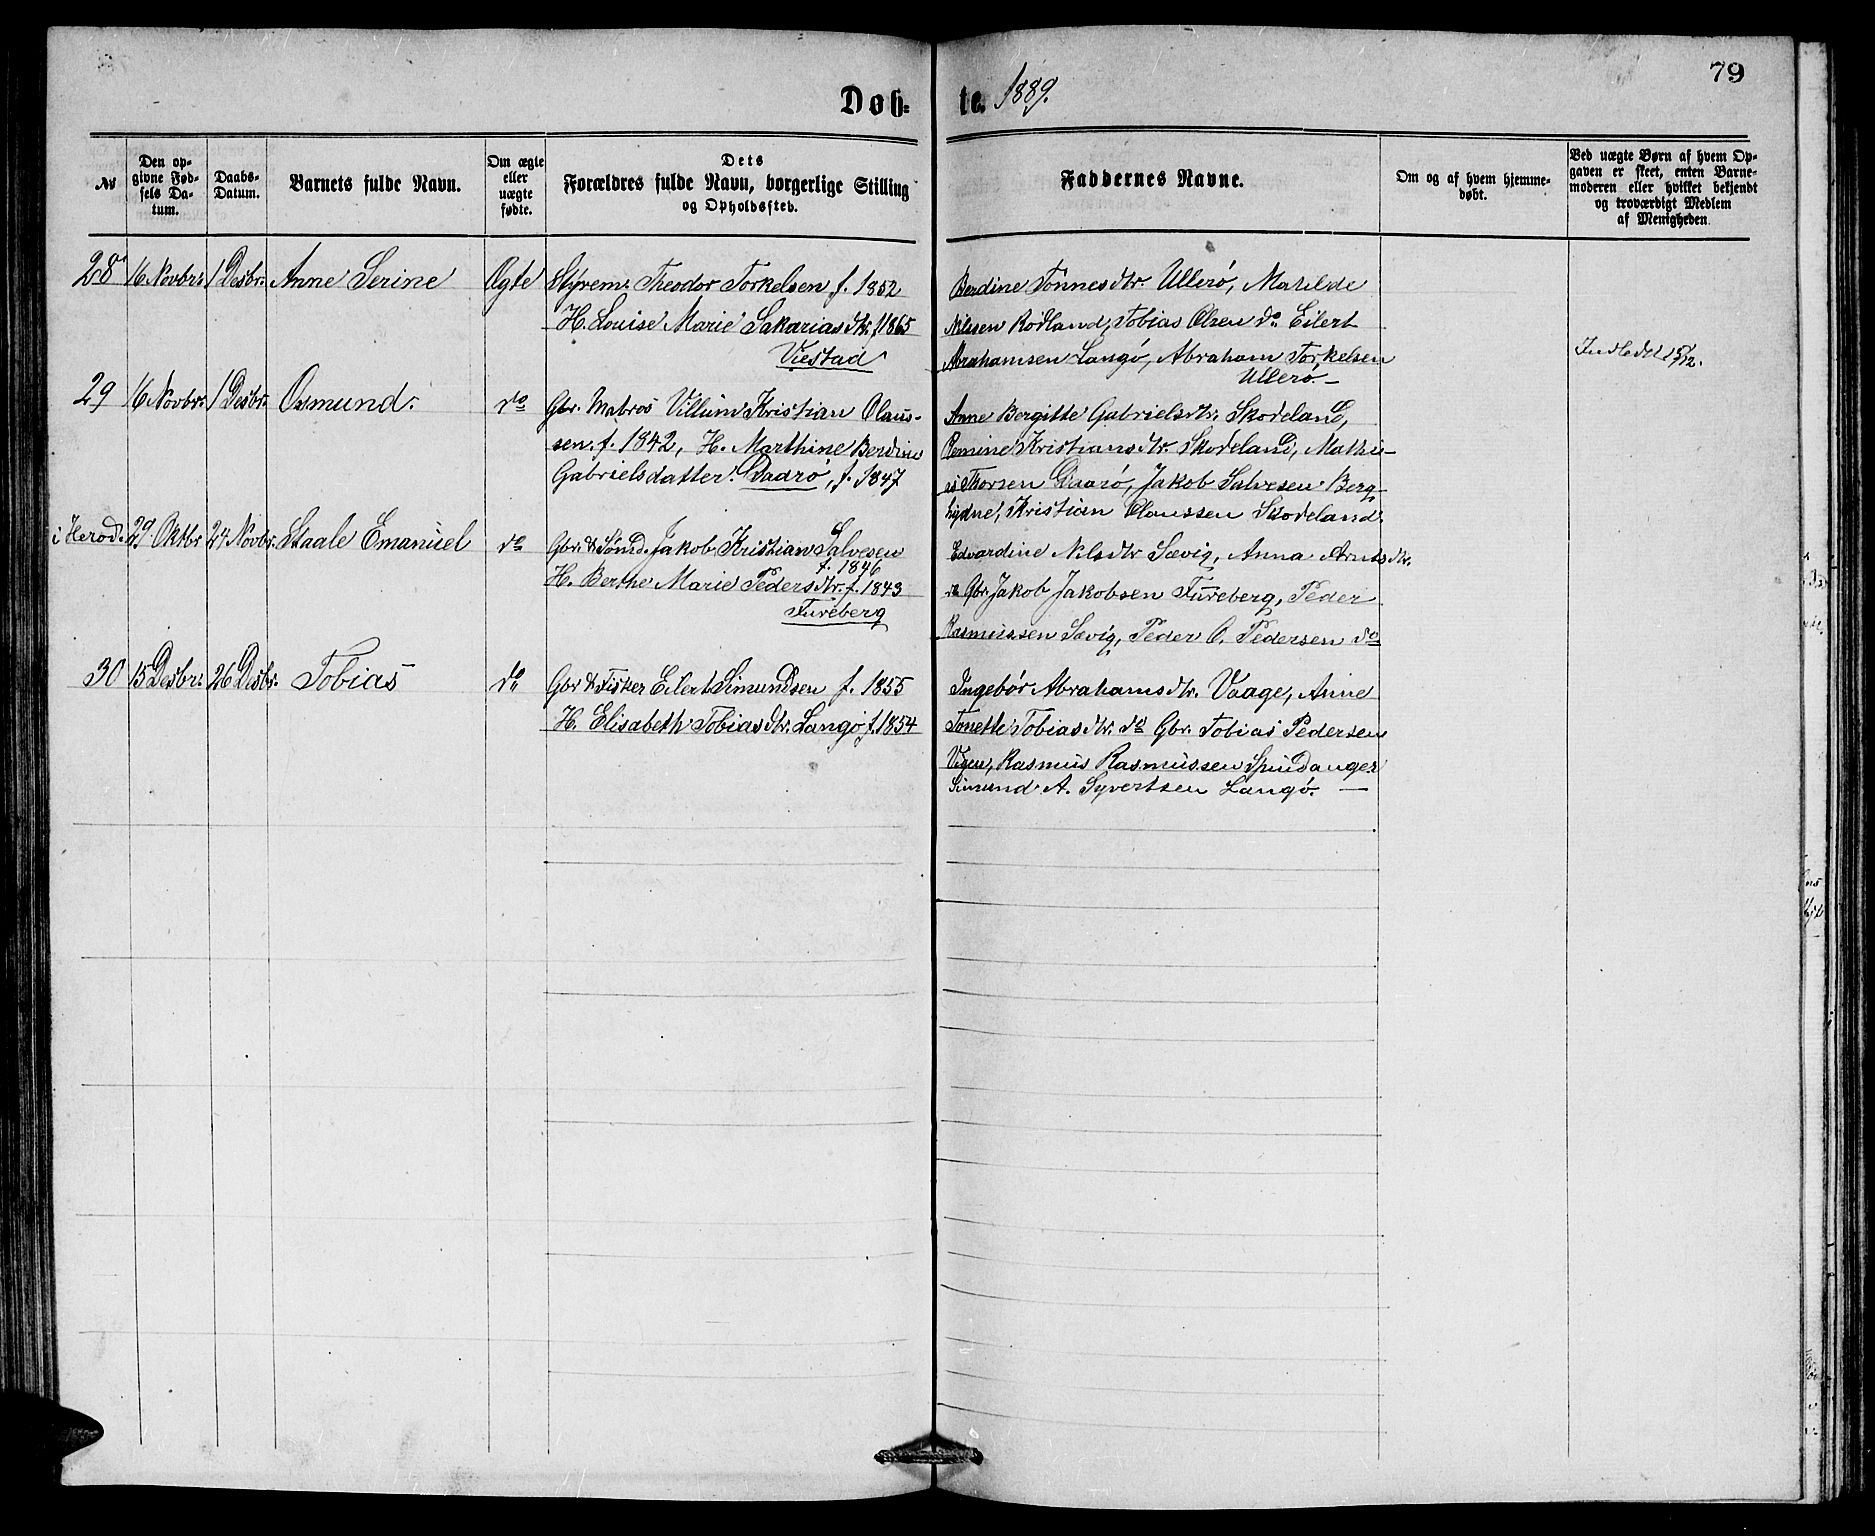 79
Døb- te. 1889.
№
Den op-
givne Fød-
sels Da-
tum.
Daabs-
Datum.
Barnets fulde Navn.
Om ægte
eller
uægte
fødte.
Dets
Forældres fulde Navn, borgerlige Stilling
og Opholdssted.
Faddernes Navne.
Om og af hvem hjemme-
døbt.
Ved uægte Børn af hvem Op-
gaven er skeet, enten Barne-
moderen eller hvilket bekjendt
og troværdigt Medlem
af Menigheden.
28 16 Novbr. 1 Desbr. Anne Serine Ægte
Styrem. Theodor Torkelsen, f. 1852
H. Louise Marie Sakariasdtr. f. 1865
Viestad
Berdine Tønnesdtr. Ullerø, Matilde
Nilssen Rødland, Tobias Olsen do Eilert
Abrahamsen Langø, Abraham Torkelsen
Ullerø. —
Indledet 15/12.
29 16 Novbr. 1 Desbr. Osmund. do
Gbr. Matros Villum Kristian Olaus-
sen. f. 1842, H. Marthine Berdine
Gabrielsdatter. Daarø, f. 1847
Anne Bergitte Gabrielsdtr. Skodeland,
Kristiansdtr. Skodeland, Mathi-
as Thorsen Daarø, Jakob Salvesen Berg-
Kristian Olaussen Skodeland.
i Herod. 29. Oktbr. 24 Novbr. Staale Emanuel do
Gbr. & Jakob Kristian Salvesen
f. 1846
H. Berthe Marie Pedersdtr. f. 1843
Fureberg
Edvardine Nilsdtr Sævig, Anna
Gbr. Jakob Jakobsen Fureberg, Peder
Rasmussen Sævig, Peder O. Pedersen do
30 15 Desbr. 26 Desbr. Tobias do
Gbr & Fisker Eilert Simundsen f. 1855
H. Elisabeth Tobiasdtr. Langø f. 1854
Ingebór Abrahamsdtr. Vaage, Anne
Tonette Tobiasdtr. do Gbr. Tobias Pedersen
Vigen, Rasmus Rasmussen Spindanger
Simund A. Syvertsen Langø. —